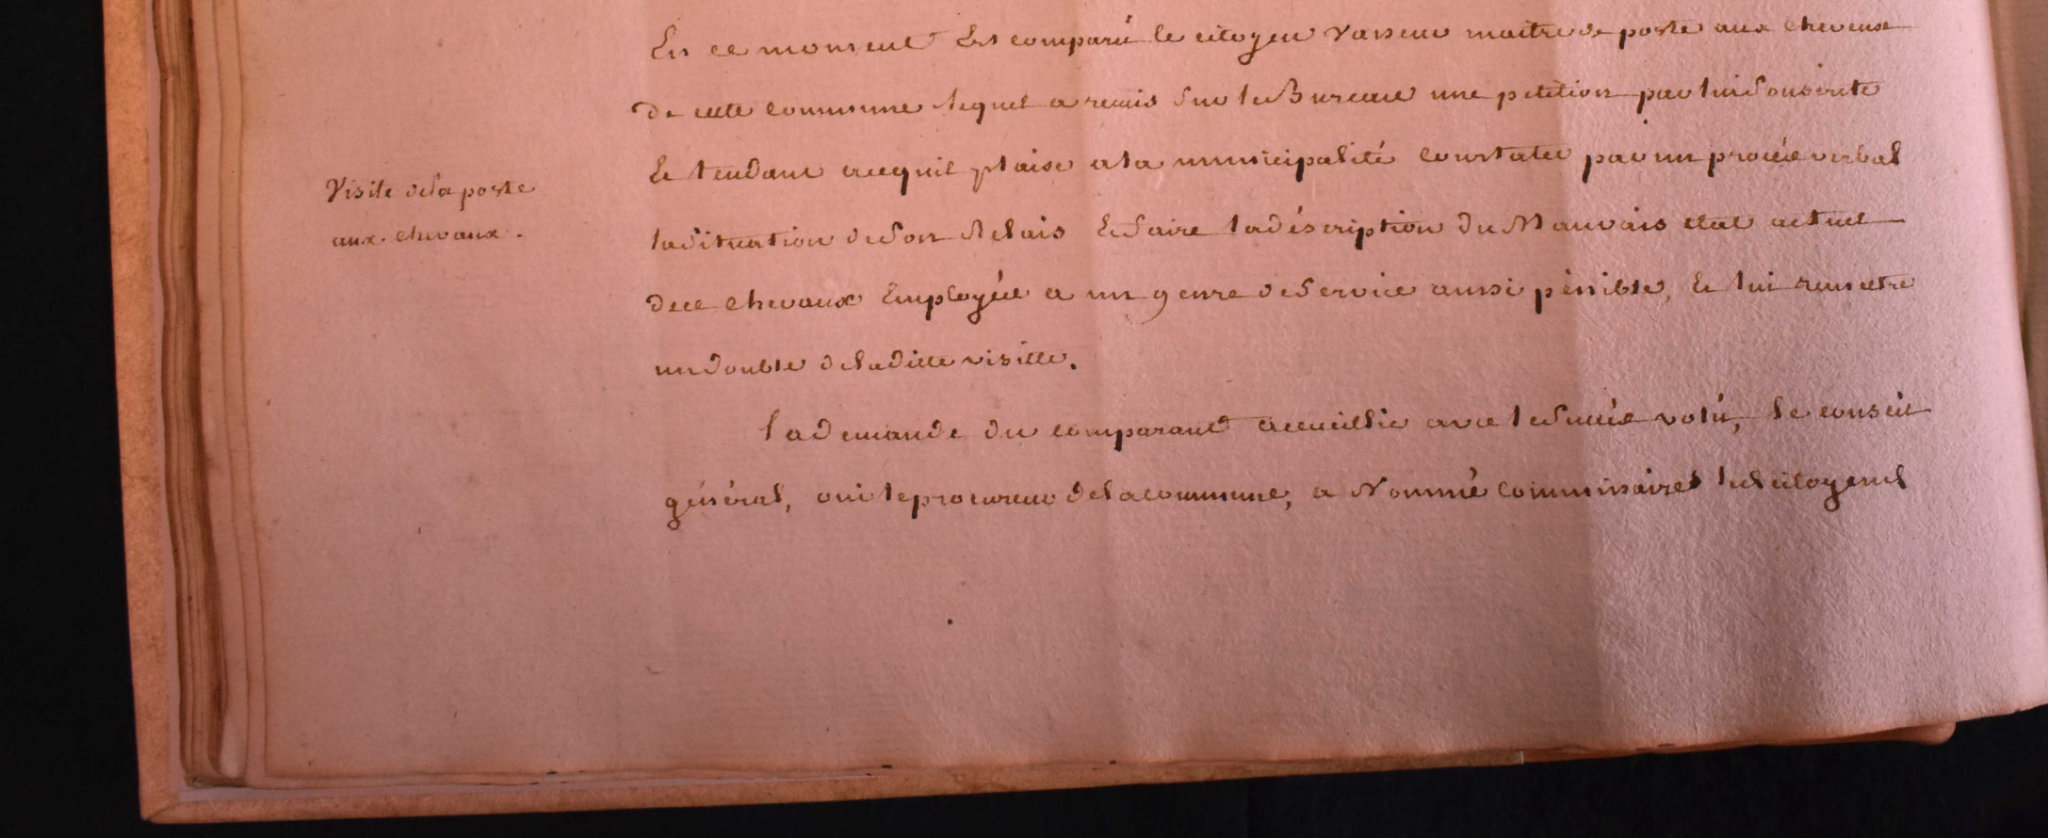 En ce moment Est comparu le citoyen Vasseur maitre de poste aux chevaux
de cette commune lequel a remis sur le Bureau une petition par lui souscritte
Et tendant acequil plaise ala municipalité constater par un procés verbal
la situation de son Relais Et faire la déscription du Mauvais etat actuel
Visite dela poste
aux chevaux.
de ces chevaux Employés a un genre de service aussi pénible, Et lui remettre
un double de laditte visitte.
la demande du comparant accueillie avec le succés volu, le conseil
général, oui le procureur de la commune, a Nommé commissaires les citoyens